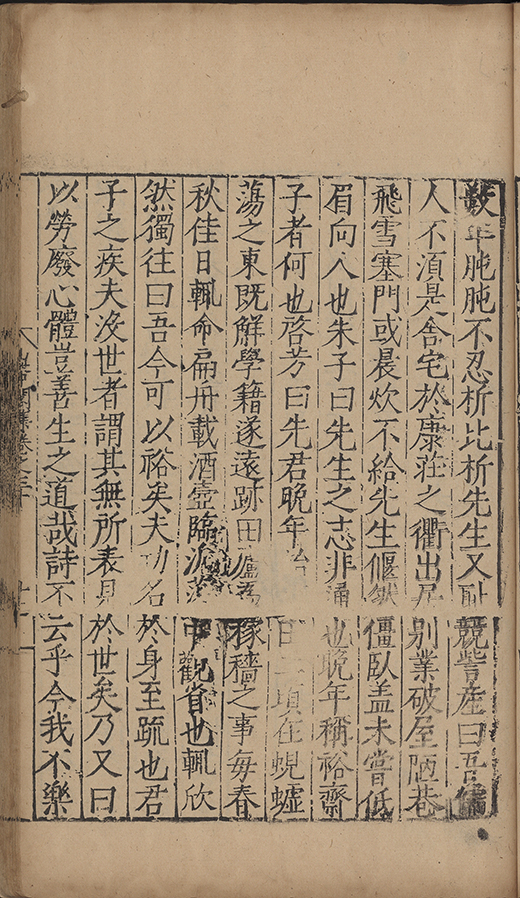 數年肫肫不忍析比析先生又恥競訾產曰吾儒
人不須是舍宅於康莊之衢出居別業破屋陋巷
飛雪塞門或晨炊不給先生偃然僵臥盖未嘗低
眉向人也朱子曰先生之志非通也晚年稱裕齋
子者何也啓芳曰先君晚年治田二頃在蜆蠦
蕩之東既解學籍遂遠跡田廬為稼穡之事每春
秋佳日輒命扁舟載酒壺臨流中觀省也輒欣
然獨往曰吾今可以裕矣夫功名於身至疏也君
子之疾夫没世者謂其無所表見於世矣乃又曰
以勞廢心體豈善生之道哉詩不云乎今我不樂